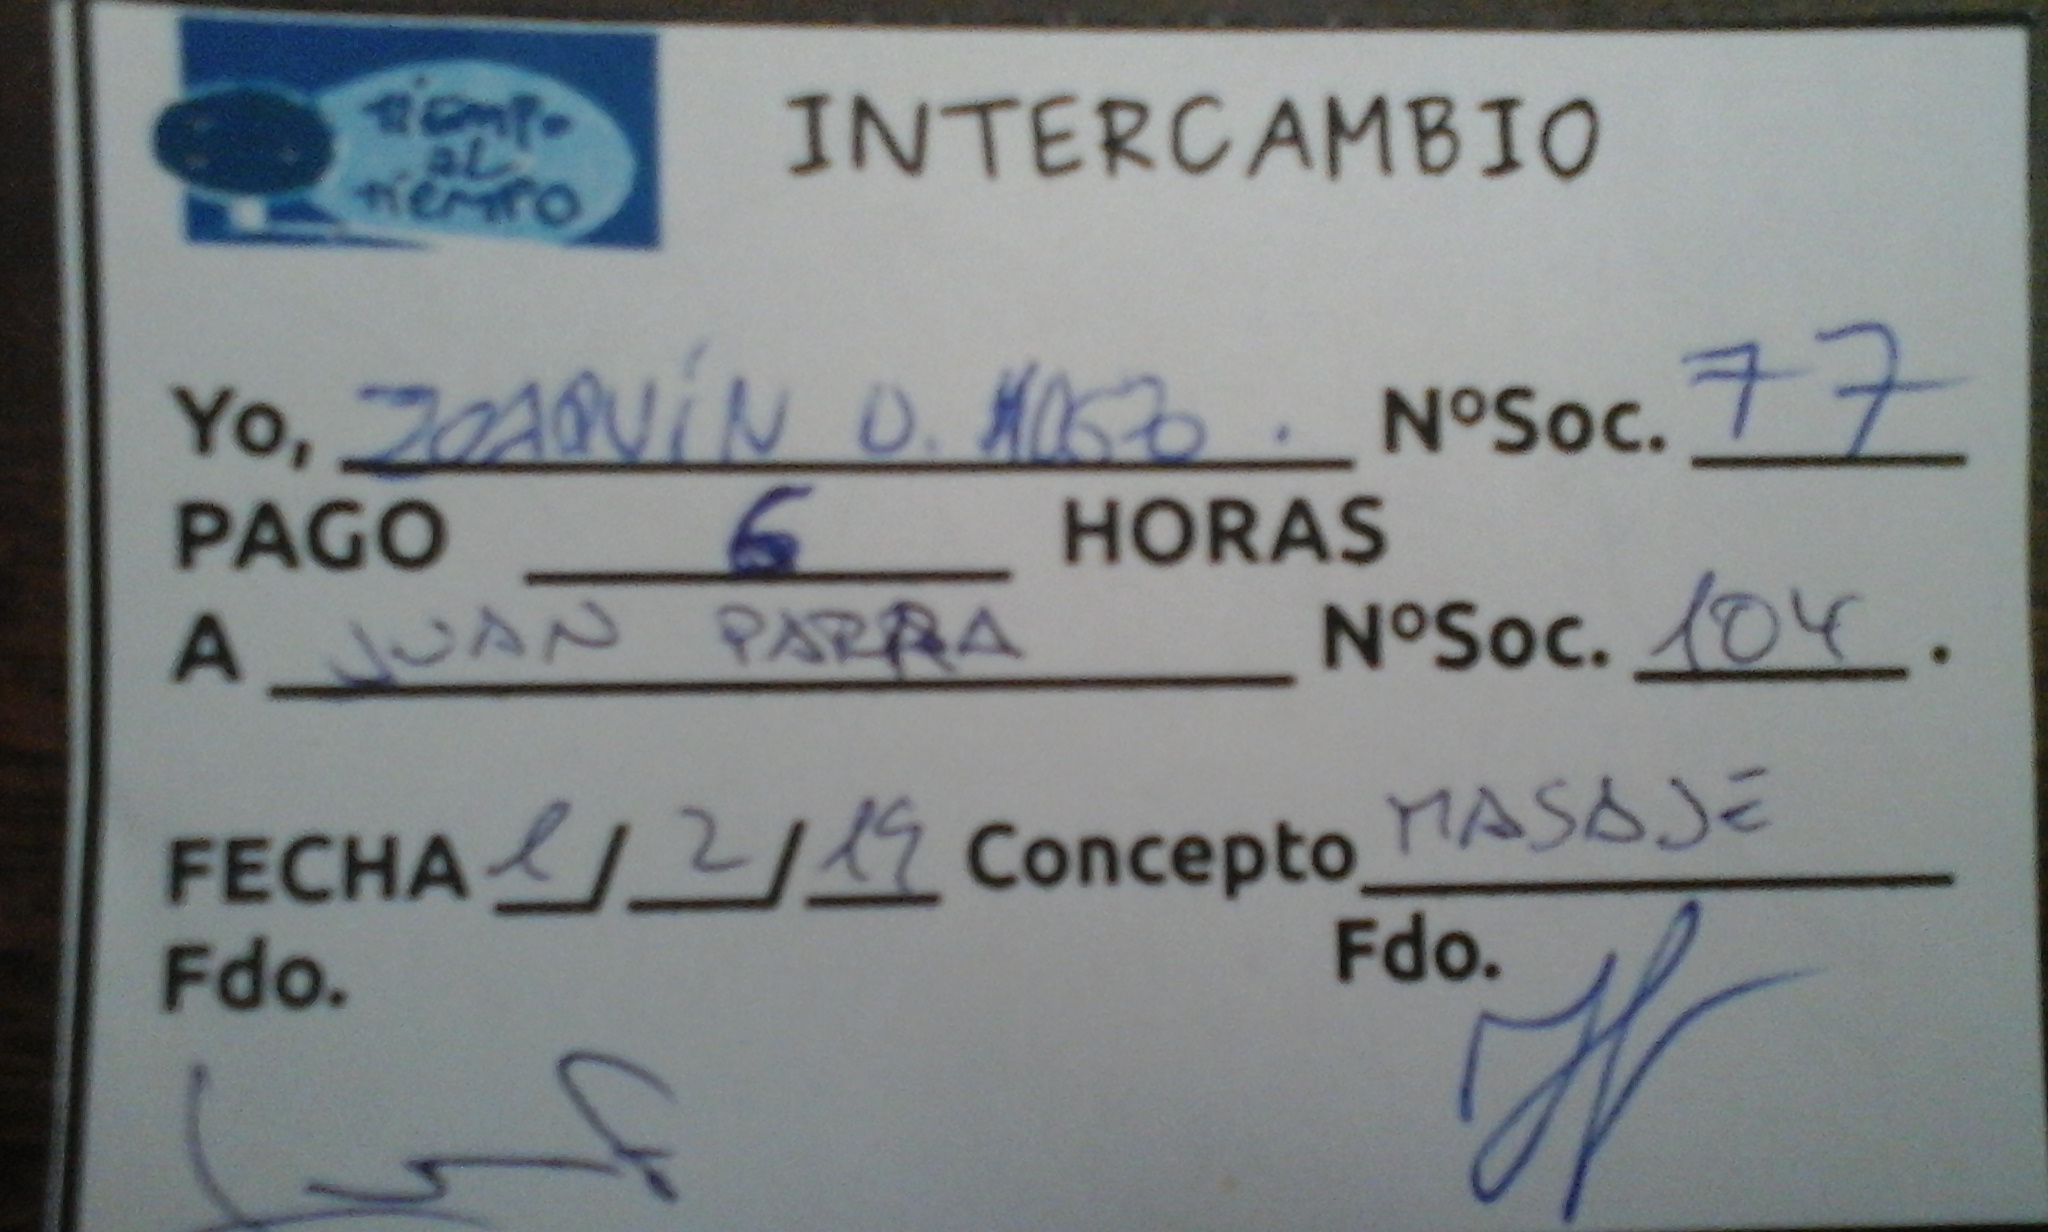 Tiempo
al
Tiempo
INTERCAMBIO
Yo, JOAQUÍN D. NºSoc. 77
PAGO 6 HORAS
A JUAN PARRA NºSoc. 104.
FECHA 1/2/19 Concepto MASAJE
Fdo. Fdo.